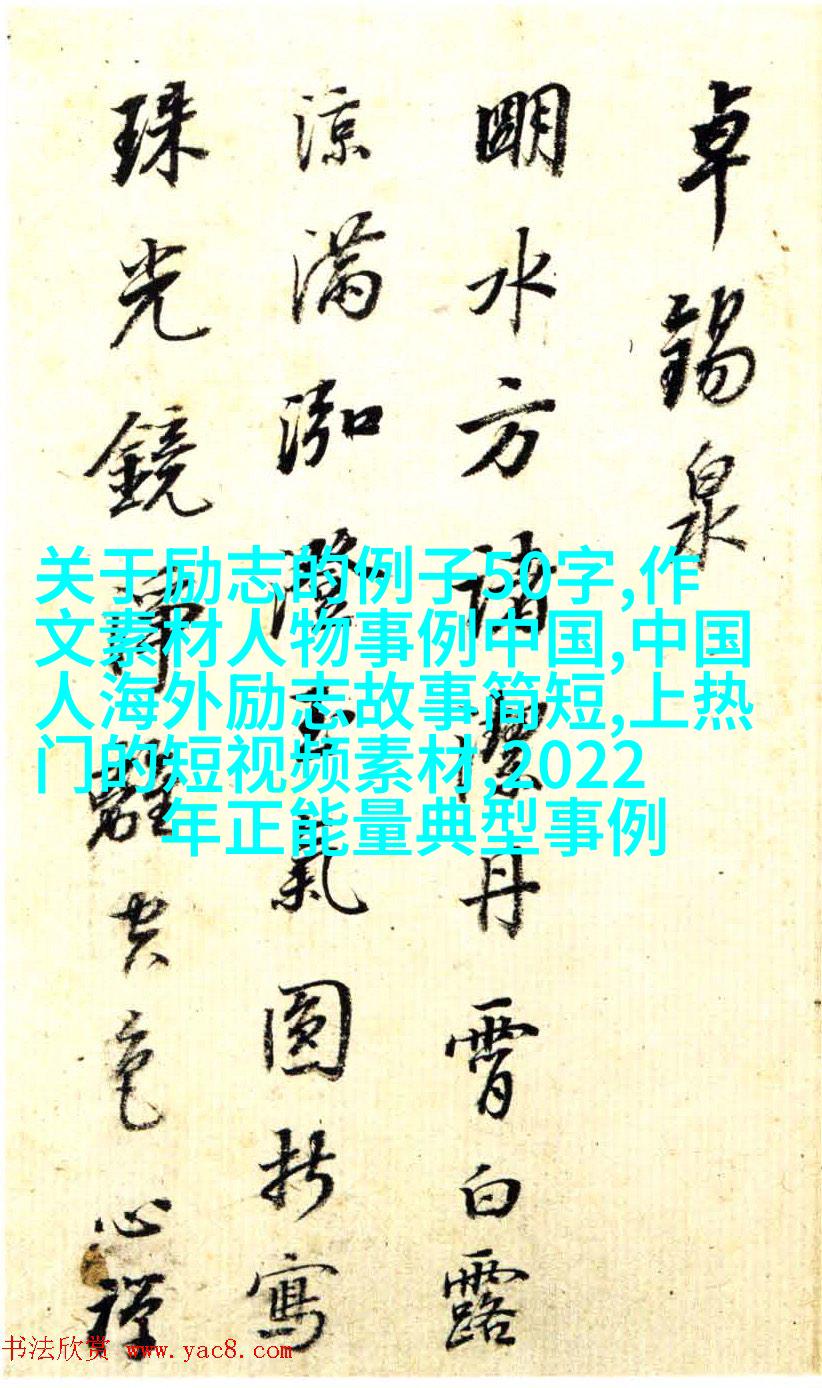 卓锡泉
明水方诸洁丹霄白露
凉满泓澄一气圆抟写
珠光镜净离空色心禅
关于励志的例子50字,作
文素材人物事例中国,中国
人海外励志故事简短,上热
门的短视频素材,2022
年正能量典型事例
书法欣赏 www.yac8.com